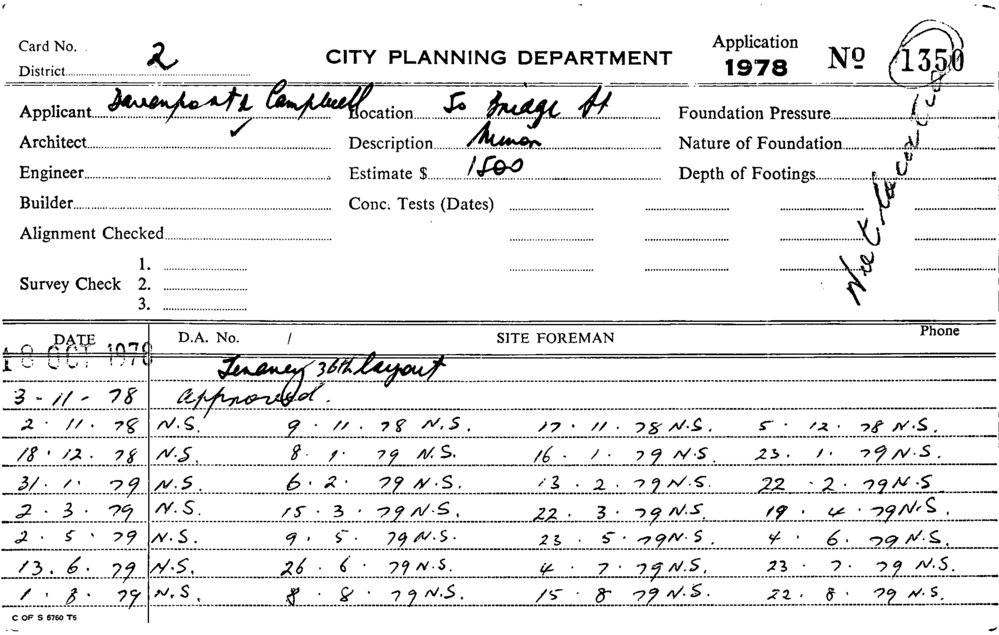 Card No.
District 2
CITY PLANNING DEPARTMENT
Application
1978 No 1350
Applicant Davenport & Campbell Location 50 Bridge St Foundation Pressure
Architect Description Minor Nature of Foundation
Engineer Estimate $ 1500 Depth of Footings
Builder Conc. Tests (Dates)
Alignment Checked
Survey Check 1.
2.
3.
DATE D.A. No. / SITE FOREMAN Phone
18 OCT 1978 Tenancy 36th layout
3 - 11 - 78 approved.
2 . 11 . 78 N.S. 9 . 11 . 78 N.S. 17 . 11 . 78 N.S. 5 . 12 . 78 N.S.
18 . 12 . 78 N.S. 8 . 1 . 79 N.S. 16 . 1 . 79 N.S. 23 . 1 . 79 N.S.
31 . 1 . 79 N.S. 6 . 2 . 79 N.S. 13 . 2 . 79 N.S. 22 . 2 . 79 N.S
2 . 3 . 79 N.S. 15 . 3 . 79 N.S. 22 . 3 . 79 N.S. 19 . 4 . 79 N.S.
2 . 5 . 79 N.S. 9 . 5 . 79 N.S. 23 . 5 . 79 N.S. 4 . 6 . 79 N.S.
13 . 6 . 79 N.S. 26 . 6 . 79 N.S. 4 . 7 . 79 N.S. 23 . 7 . 79 N.S.
1 . 8 . 79 N.S. 8 . 8 . 79 N.S. 15 . 8 . 79 N.S. 22 . 8 . 79 N.S.
C OF S 6760 T5